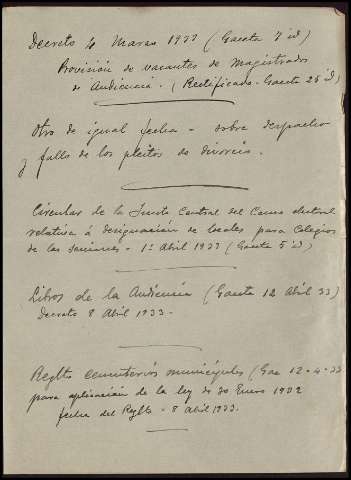 Decreto 4 Marzo 1933 (Gaceta 7 id)
Provisión de vacantes de Magistrados
de Audiencia. (Rectificado - Gaceta 25 id)
Otro de igual fecha - sobre despacho
y fallo de los pleitos de divorcio.
Circular de la Junta Central del Censo electoral
relativa á designación de locales para Colegios
de las secciones - 1º Abril 1933 (Gaceta 5 id)
Libros de la Audiencia (Gaceta 12 Abril 33)
Decreto 8 Abril 1933 -
Reglto cementerios municipales (Gac 12-4-33
para aplicación de la ley de 30 Enero 1932
fecha del Reglto - 8 Abril 1933.